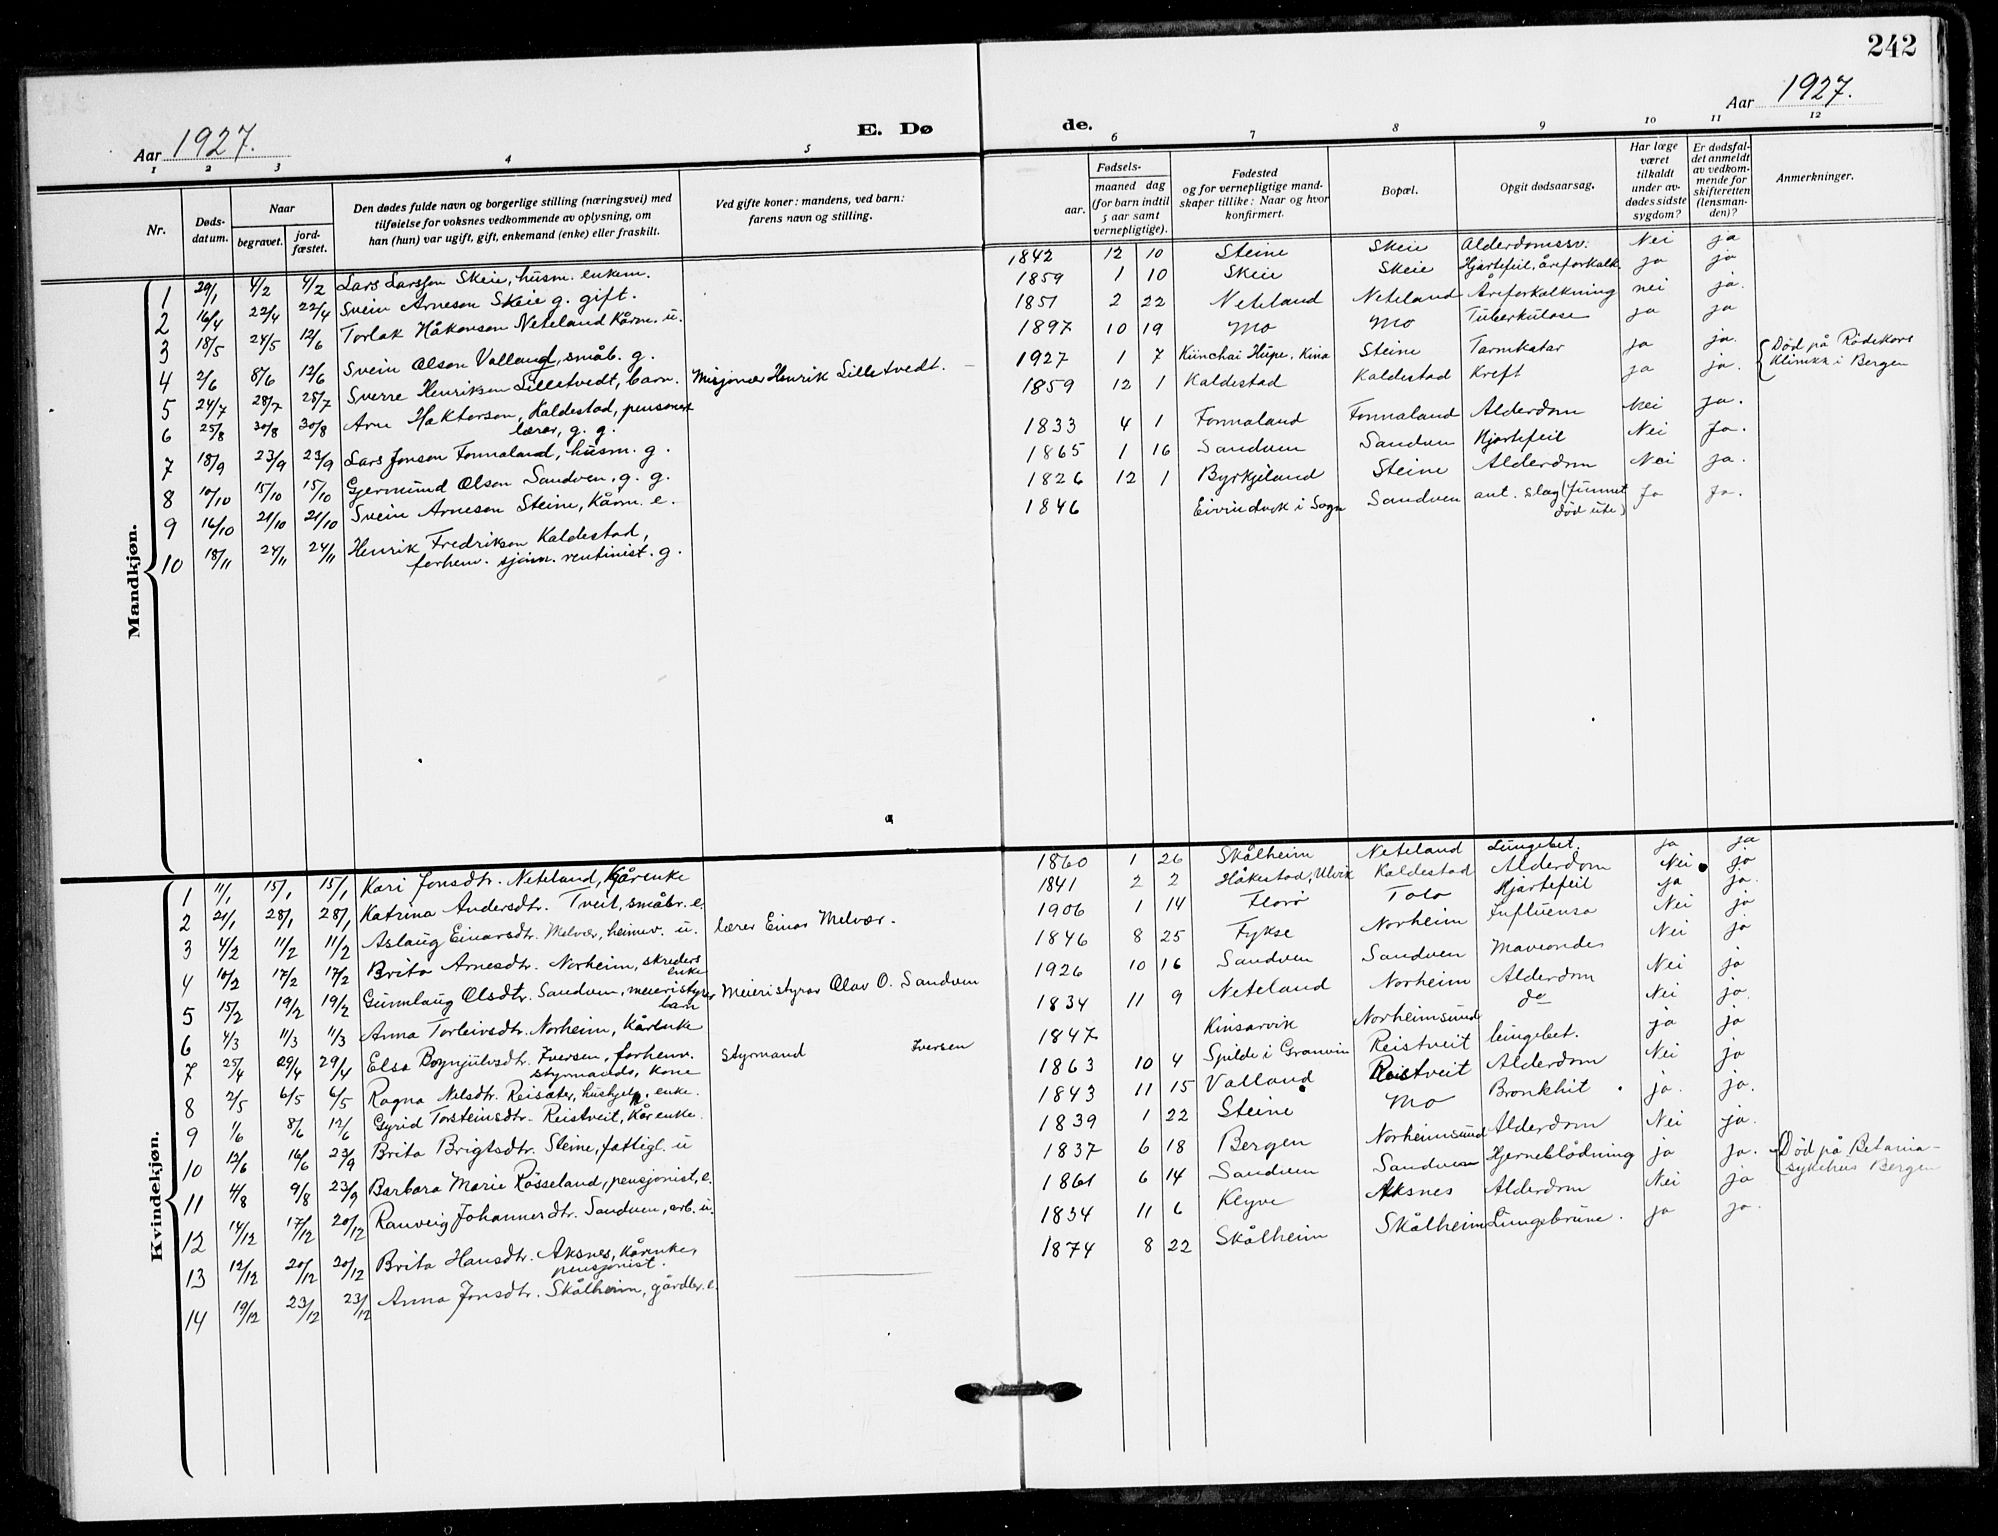 242
Aar 1927.
Aar 1927.
E. Dø de.
1 2 3 4 5 6 7 8 9 10 11 12
Nr.
Døds-
datum.
Naar
begravet.
jord-
fæstet.
Den dødes fulde navn og borgerlige stilling (næringsvei) med
tilføielse for voksnes vedkommende av oplysning, om
han (hun) var ugift, gift, enkemand (enke) eller fraskilt.
Ved gifte koner: mandens, ved barn:
farens navn og stilling.
Fødsels-
aar.
maaned dag
(for barn indtil
5 aar samt
vernepligtige).
Fødested
og for vernepligtige mand-
skaper tillike: Naar og hvor
konfirmert.
Bopæl.
Opgit dødsaarsag.
Har læge
været
tilkaldt
under av-
dødes sidste
sygdom?
Er dødsfal-
det anmeldt
av vedkom-
mende for
skifteretten
(lensman-
den)?
Anmerkninger.
Mandkjøn.
1 29/1 4/2 4/2 Lars Larsson Skeie, husm. enkem. 1842 12 10 Steine Skeie Alderdomssv. Nei ja
2 16/4 22/4 22/4 Svein Arneson Skeie g. gift. 1859 1 10 Skeie Skeie Hjartefeil, åreforkalk. ja ja
3 18/5 24/5 12/6 Torlak Håkonson Neteland Kårm. u. 1851 2 22 Neteland Neteland Åreforkalkning nei ja.
4 2/6 8/6 12/6 Svein Olson Valland, småb. g. 1897 10 19 Mo Mo Tuberkulose ja ja
5 24/7 28/7 28/7 Sverre Henriksen Lilletvedt, barn. Misjonær Henrik Lilletvedt. 1927 1 7 Kinchai Hupe, Kina Steine Tarmkatar ja ja.
6 25/8 30/8 30/8 Arne Haktorson, Kaldestad, pensonert 1859 12 1 Kaldestad Kaldestad Kreft ja ja. Død på Rødekors
lærer, g. g. Klinikk i Bergen
7 18/9 23/9 23/9 Lars Jonson Fonnaland, husm. g. 1833 4 1 Fonnaland Fonnaland Alderdom Nei ja.
8 10/10 15/10 15/10 Gjermund Olson Sandven, g. g. 1865 1 16 Sandven Sandven Hjartefeil Nei Ja.
9 16/10 21/10 21/10 Svein Arneson Steine, Kårm. e. 1826 12 1 Byrkjeland Steine Alderdom Nei ja.
10 18/11 24/11 24/11 Henrik Fredrikson Kaldestad, 1846 Eivindvik i Sogn Sandven ant. slag (funnet Ja Ja.
forhenv. sjøm. rentinist. g. død ute)
Kvindekjøn.
1 11/1 15/1 15/1 Kari Jonsdtr. Neteland, Kårenke 1860 1 26 Skålheim Neteland Lungebet. ja ja
2 21/1 28/1 28/1 Katrina Andersdtr. Tveit, småbr. e. 1841 2 2 Håkestad, Ulvik Kaldestad Alderdom Nei ja
3 4/2 11/2 11/2 Aslaug Einarsdtr. Melvær, heimev. u. lærer Einar Melvær. 1906 1 14 Florø Tolo Hjartefeil ja ja.
4 10/2 17/2 17/2 Brita Arnesdtr. Norheim, skreders 1846 8 25 Fykse Norheim Influensa Nei ja
enke
5 15/2 19/2 19/2 Gunnlaug Olsdtr. Sandven, meieristyrer Meieristyrar Olav O. Sandven 1926 10 16 Sandven Sandven Maveonde Nei ja
barn
6 4/3 11/3 11/3 Anna Torleivsdtr. Norheim, Kårenke 1834 11 9 Neteland Norheim Alderdom Nei ja
7 25/4 29/4 29/4 Elsa Bognjulvsdtr. Iversen, forhenv. styrmand Iversen 1847 Kinsarvik Norheimsund do Nei ja.
styrmands, kone
8 2/5 6/5 6/5 Ragna Nelsdtr. Reisæter, hushjelp, enke. 1863 10 4 Spilde i Granvin Reistveit lungebet. ja ja
9 1/6 8/6 12/6 Gyrid Torsteinsdtr. Reistveit, Kårenke. 1843 11 15 Valland Reistveit Alderdom Nei ja
10 12/6 16/6 23/9 Brita Brigtsdtr. Steine, fattigl. u 1839 1 22 Steine Mo Bronkhit ja. ja.
11 4/8 9/8 23/9 Barbara Marie Rösseland, pensjonist, e. 1837 6 18 Bergen Norheimsund Alderdom Nei ja.
12 14/12 17/12 20/12 Ranveig Johannesdtr. Sandven, arb. u. 1861 6 14 Sandven Sandven Hjerneblödning ja ja. Død på Betania-
sykehus Bergen
13 12/12 20/12 20/12 Brita Hansdtr. Aksnes, Kårenke, 1834 11 6 Klyve Aksnes Alderdom Nei ja
pensjonist.
14 19/12 23/12 23/12 Anna Jonsdtr. Skålheim, gårdbr. e. 1874 8 22 Skålheim Skålheim Lungebrune. ja ja.